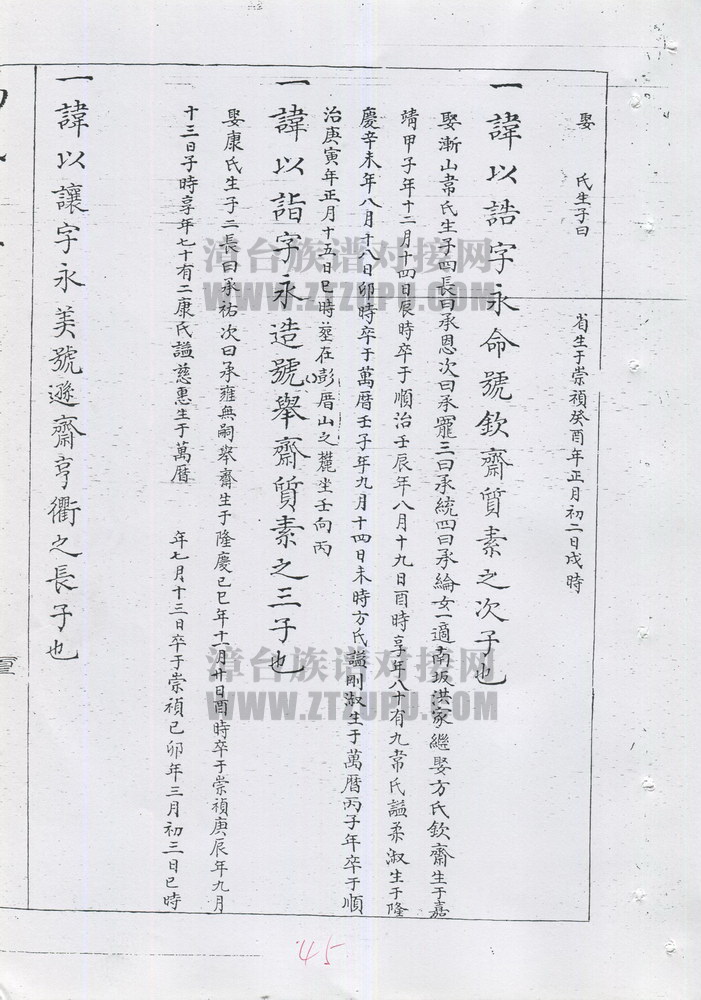 娶　氏生子曰　省生于崇禎癸酉年正月初二日戌時
一諱以誥字永命號欽齋質素之次子也
娶漸山韋氏生子四長曰承恩次曰承寵三曰承統四曰承綸女一適南坂洪家繼娶方氏欽齋生于嘉
靖甲子年十二月十四日辰時卒于順治壬辰年八月十九日酉時享年八十有九韋氏謚柔淑生于隆
慶辛未年八月十八日卯時卒于萬曆壬子年九月十四日未時方氏謚剛淑生于萬曆丙子年卒于順
治庚寅年正月十五日巳時塟在彭厝山之麓坐壬向丙
一諱以詣字永造號舉齋質素之三子也
娶康氏生子二長曰承祐次曰承雍無嗣舉齋生于隆慶己巳年十一月廿日酉時卒于崇禎庚辰年九月
十三日子時享年七十有二康氏謚慈惠生于萬曆　年七月十三日卒于崇禎己卯年三月初三日巳時
一諱以讓字永美號遜齋亨衢之長子也
漳台族谱对接网
WWW.ZTZUPU.COM
漳台族谱对接网
WWW.ZTZUPU.COM
45